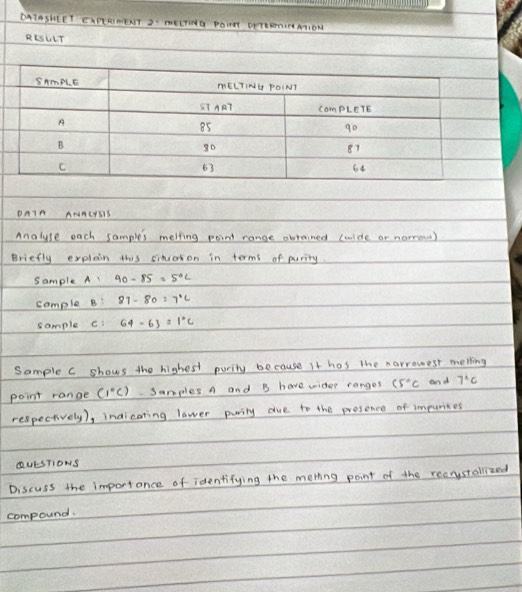 DATASHEET EXPERIMENT 2: MELTING POINT DETERMINATION
RESULT
SAMPLE MELTING POINT
START COMPLETE
A 85 90
B 80 87
C 63 64
DATA ANALYSIS
Analyse each sample's melting point range obtained (wide or narrow)
Briefly explain this situation in terms of purity.
Sample A: 90 - 85 = 5°C
Sample B: 87 - 80 = 7°C
Sample C: 64 - 63 = 1°C
Sample C shows the highest purity because it has the narrowest melting
point range (1°C). Samples A and B have wider ranges (5°C and 7°C
respectively), indicating lower purity due to the presence of impurities
QUESTIONS
Discuss the importance of identifying the melting point of the recrystallized
compound.